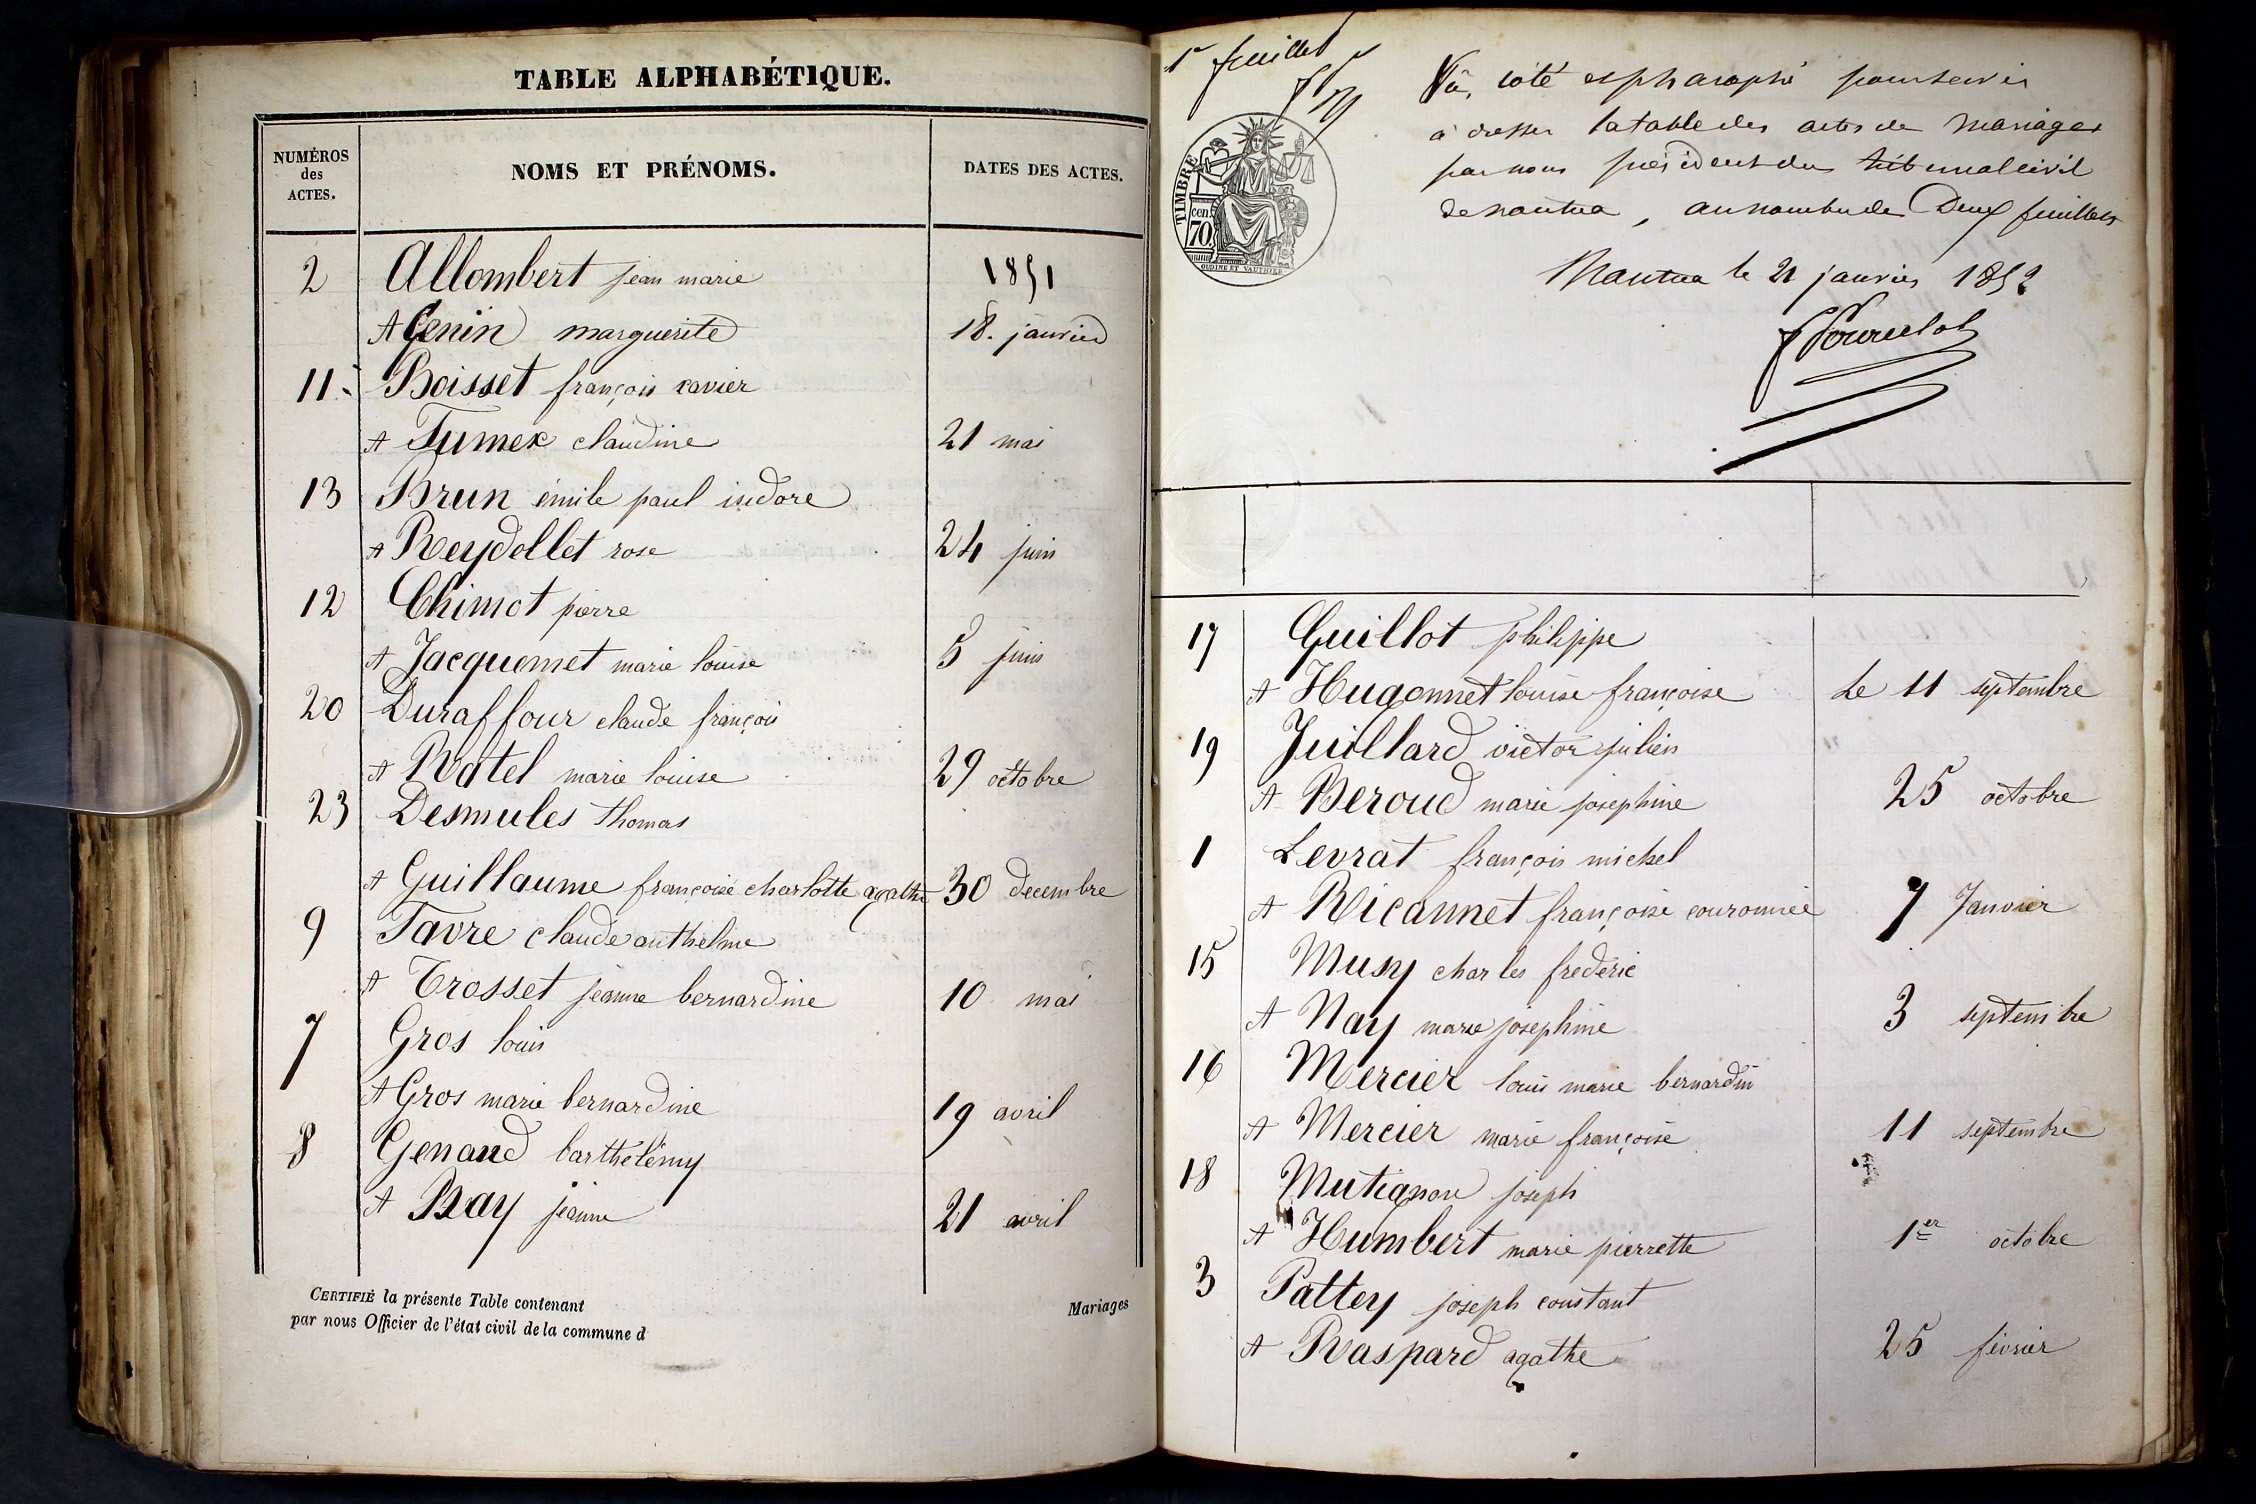 TABLE ALPHABÉTIQUE.
NUMÉROS des ACTES. NOMS ET PRÉNOMS. DATES DES ACTES.
2 Allombert jean marie 1851
A Genin marguerite 18. janvier
11 Boisset françois xavier
A Fumex claudine 21 mai
13 Brun émile paul isidore
A Reydellet rose 24 juin
12 Chimot pierre
A Jacquemet marie louise 5 juin
20 Duraffour claude françois
A Ratel marie louise 29 octobre
23 Desmules Thomas
A Guillaume françoise charlotte agathe 30 decembre
9 Favre claude anthelme
A Crosset jeanne bernardine 10 mai
7 Gros louis
A Gros marie bernardine 19 avril
8 Genand barthélemy
A Bay jeanne 21 avril
CERTIFIÉ la présente Table contenant Mariages
par nous Officier de l'état civil de la commune d
1r feuillet
TIMBRE
cen. 70
OUDINÉ ET VAUTHIER
Vû, coté et pharaphé pour servir
à dresser la table des actes de mariages
par nous président du tribunal civil
de nantua, au nombre de Deux feuillets
Nantua le 21 janvier 1852
17 Guillot philippe
A Hugonnet louise françoise Le 11 septembre
19 Juillard victor julien
A Beroud marie josephine 25 octobre
1 Levrat françois michel
A Ricannet françoise couronnée 7 Janvier
15 Musy charles frederic
A Nay marie josephine 3 septembre
16 Mercier louis marie bernardin
A Mercier marie françoise 11 septembre
18 Mutignon joseph
A Humbert marie pierrette 1er octobre
3 Pattey joseph constant
A Raspard agathe 25 février